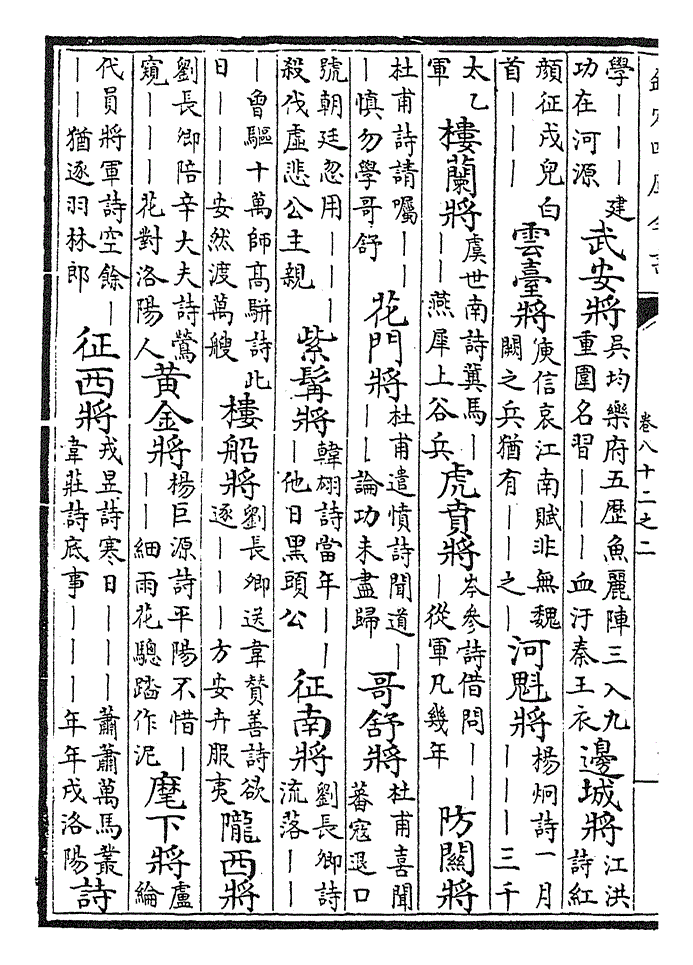 欽定四庫全書
卷八十二之二
學｜｜｜建功在河源 武安將 吳均樂府五歷魚麗陣三入九重圍名習｜｜｜血汙秦王衣 邊城將 江洪詩紅
顏征戍兒白首｜｜｜ 雲臺將 庾信哀江南賦非無魏闕之兵猶有｜｜之｜ 河魁將 楊炯詩一月｜｜｜三千
太乙軍 樓蘭將 虞世南詩冀馬｜｜｜燕犀上谷兵 虎賁將 岑參詩借問｜｜｜從軍凡幾年 防關將
杜甫詩請囑｜｜｜慎勿學哥舒 花門將 杜甫遣憤詩聞道｜｜｜論功未盡歸 哥舒將 杜甫喜聞蕃寇退口
號朝廷忽用｜｜｜殺伐虛悲公主親 紫髯將 韓翃詩當年｜｜｜他日黑頭公 征南將 劉長卿詩流落｜｜
｜曾驅十萬師高駢詩此日｜｜｜安然渡萬艘 樓船將 劉長卿送韋贊善詩欲逐｜｜｜方安卉服夷 隴西將
劉長卿陪辛大夫詩鶯窺｜｜｜花對洛陽人 黃金將 楊巨源詩平陽不惜｜｜｜細雨花驄踏作泥 麾下將 盧綸
代員將軍詩空餘｜｜｜猶逐羽林郎 征西將 戎昱詩寒日｜｜｜蕭蕭萬馬叢韋莊詩底事｜｜｜年年戍洛陽 詩